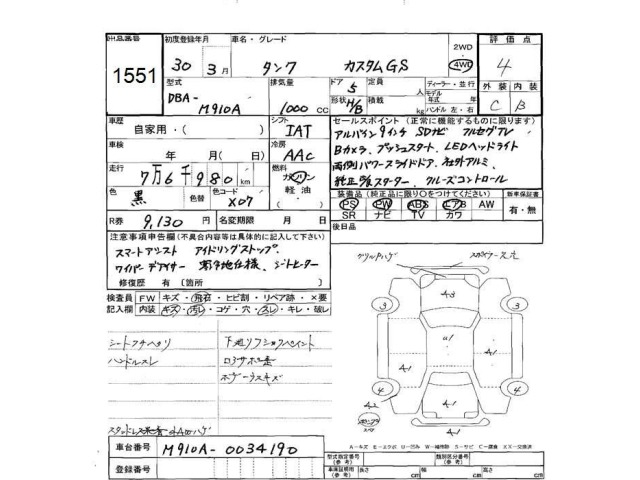 出品番号 初度登録年月 車名・グレード 評価点
1551 30年 3月 タンク カスタムGS 2WD 4WD 4
型式 排気量 ドア 定員 ディーラー・並行 外装 内装
DBA- M910A 1000 CC 5 人 モデル年式 年 C B
形状 H/B 積載 kg ハンドル 左・右
車歴 シフト セールスポイント (正常に機能するものに限ります)
自家用・( ) IAT アルパイン9インチ SDナビ フルセグTV
車検 冷房 Bカメラ、プッシュスタート LEDヘッドライト
年 月(日) AAC 両側パワースライドドア 社外アルミ
走行 7万6千980km 燃料 ガソリン 軽油 純正 スターター クルーズコントロール
色 黒 色替 色コード X07 装備品 (純正品に限り○をつけてください) 新車保証書
PS PW ABS エアB AW 有・無
R券 9,130円 名変期限 月 日 SR ナビ TV カワ
注意事項申告欄 (不具合内容等は具体的に記入して下さい) 後日品
スマートアシスト アイドリングストップ
ワイパーデアイサー 寒冷地仕様、シートヒーター
修復歴 有〔箇所 〕
検査員 FW キズ・飛石・ヒビ割・リペア跡・×要
記入欄 内装 キズ・汚レ・コゲ・穴・スレ・キレ・破レ
シートフチヘタリ 下廻リフショクペイント
ハンドルスレ
ボデーウスキズ
グリルPハゲ
A3
3 3
A1 U1 A1
4 4
A2 A1 A1
A-キズ E-エクボ U-凹ミ W-補修跡 S-サビ C-腐食 XX-交換済
車台番号 M910A-0034190 型式指定番号 (参考) 類別区分番号 (参考)
登録番号 車検証明用 (参考) 長さ cm 幅 cm 高さ cm